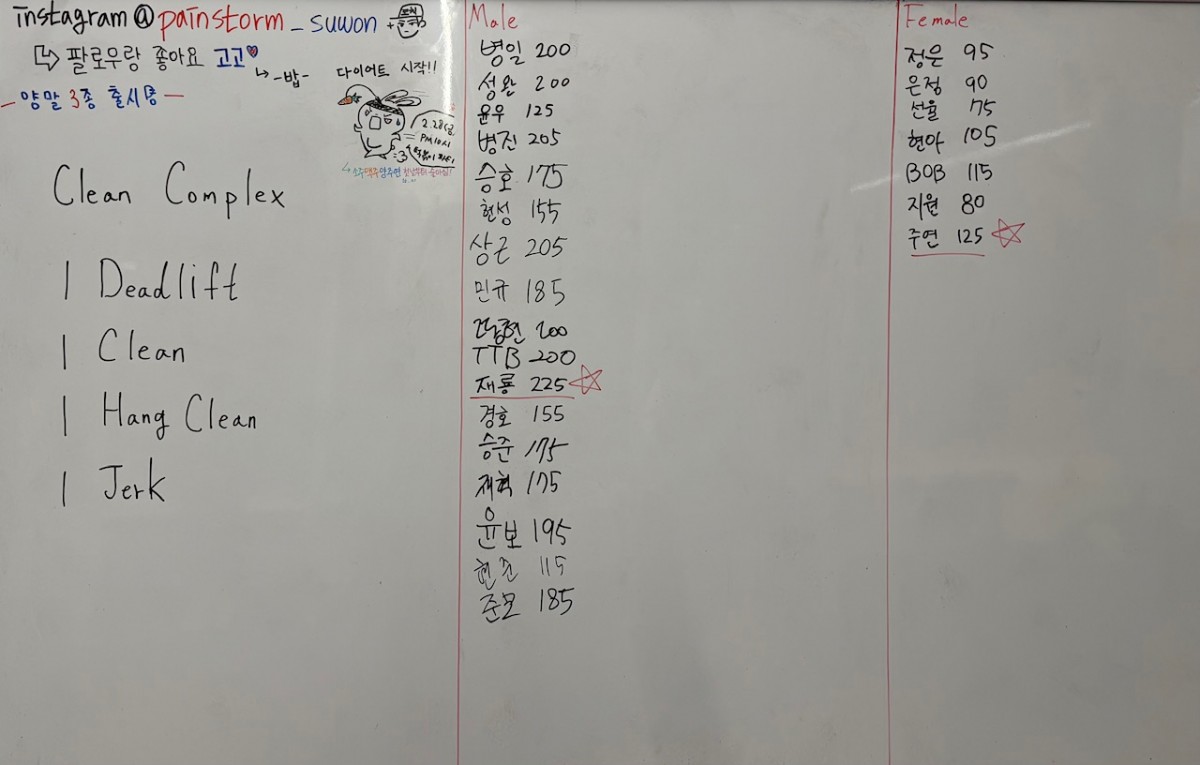 instagram @painstorm_suwon +
팔로우랑 좋아요 고고
-밥-
- 양말 3종 출시 -
다이어트 시작!!
2.28(금)
PM10시
Clean Complex
1 Deadlift
1 Clean
1 Hang Clean
1 Jerk
Male
병일 200
성완 200
윤우 125
병진 205
승호 175
현성 155
상근 205
민규 185
200
TTB 200
재룡 225
경호 155
승준 175
재혁 175
윤보 195
현준 115
준모 185
Female
정은 95
은정 90
선율 75
현아 105
BOB 115
지원 80
주연 125